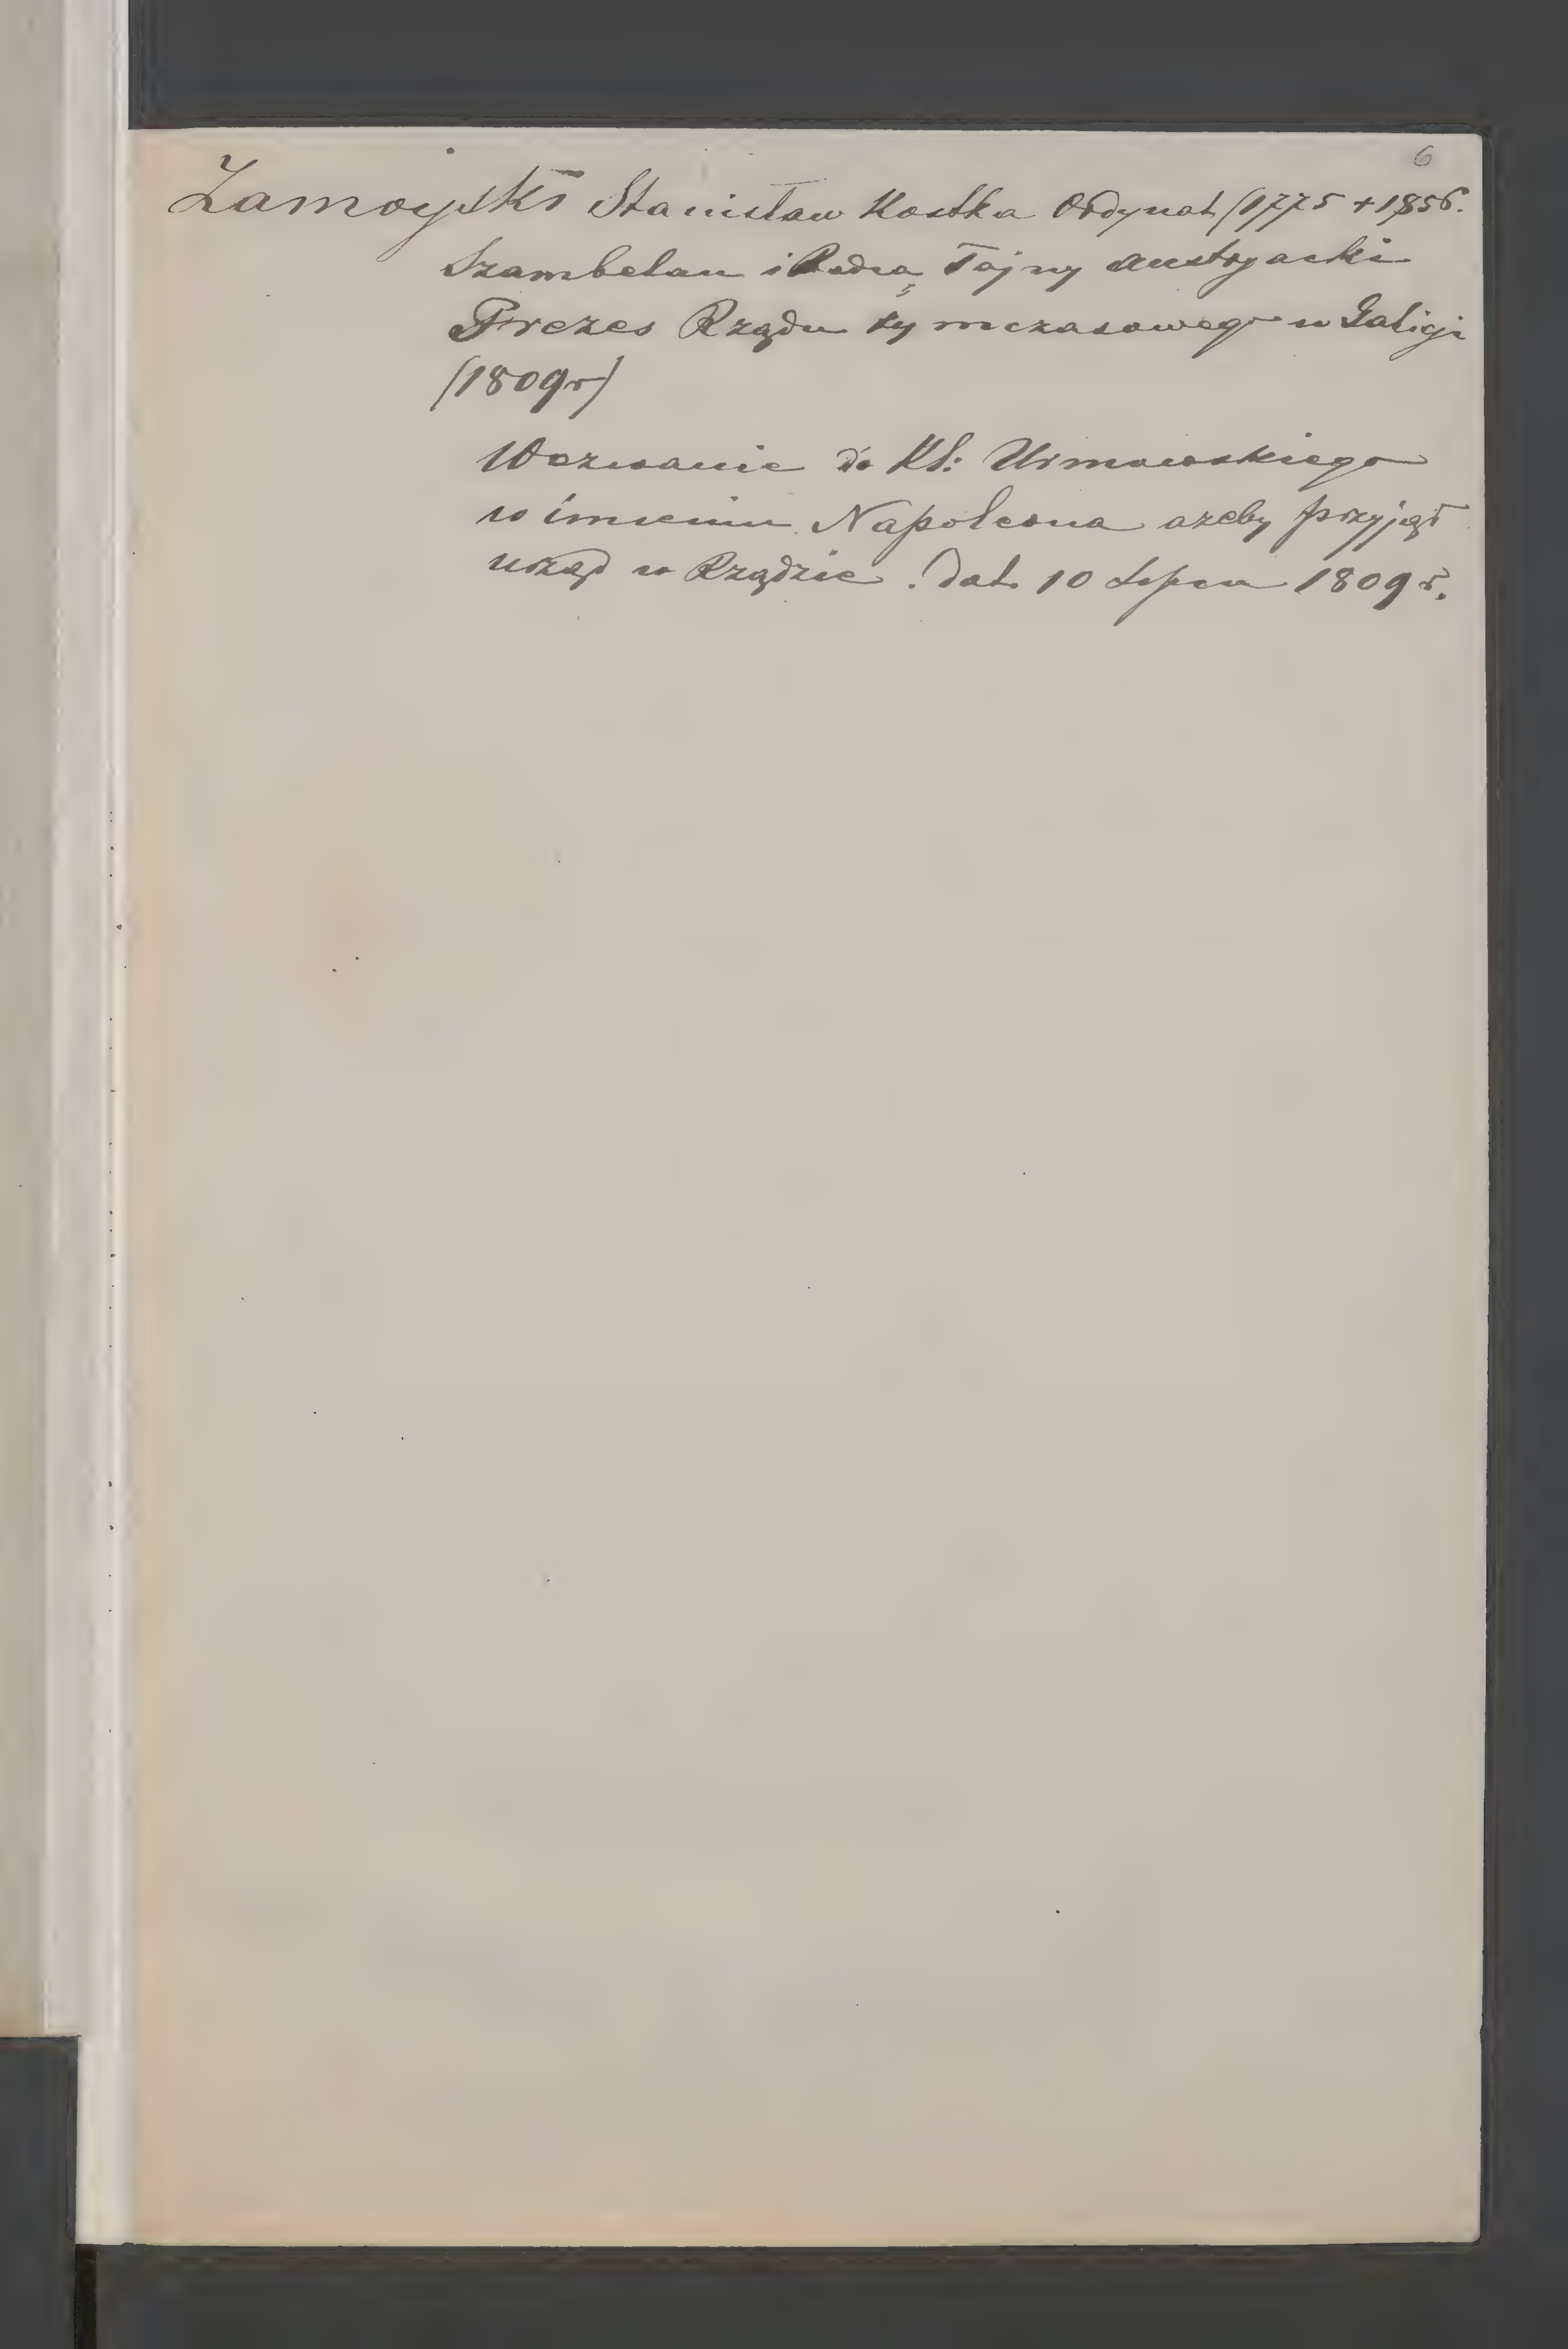 6
Zamoyski Stanisław Kostka Ordynat (1775 + 1856.
Szambelan i Radca Tajny austryacki
Prezes Rządu tymczasowego w Galicji
(1809r)
Wezwanie do Kl: Urmowskiego
w imieniu Napoleona azeby przyjął
urząd w Rządzie. Dat. 10 Lipca 1809 r.